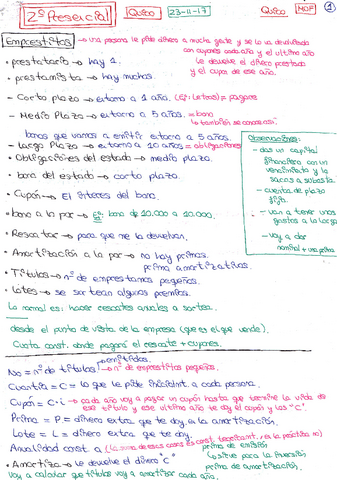 2º Presencial Quico 23-11-17 Quico MOF 1
Empréstitos → una persona le pide dinero a mucha gente y se lo va devolviendo
con cupones cada año y el último año
le devuelve el dinero prestado
y el cupón de ese año.
• prestatario → hay 1.
• prestamista → hay muchos.
- Corto plazo → entorno a 1 año. (Ej: Letras) = pagarés
- Medio Plazo → entorno a 5 años. = bono
↳ también se conoce así.
bonos que vamos a emitir entorno a 5 años.
- Largo Plazo → entorno a 10 años = obligaciones
• Obligaciones del estado → medio plazo.
• bono del estado → corto plazo.
• Cupón → El interés del bono.
• bono a la par → Ej: bono de 10.000 a 10.000.
• Rescatar → para que me lo devuelvan.
• Amortización a la par → no hay primas.
prima amortizativa.
• Títulos → nº de emprestamos pequeños.
• Lotes → se sortean algunos premios.
Observaciones:
- das un capital
financiero con un
vencimiento y lo
sacas a subasta.
- cuenta de plazo
fijo.
- van a tener unos
gastos a lo largo
- voy a dar
nominal + una prima
Lo normal es: hacer rescates anuales a sorteo.
desde el punto de vista de la empresa (que es el que vende).
Cuota const. donde pagaré el rescate + cupones.
No = nº de títulos emitidos. → nº de empréstitos pequeños.
Cuantía = C = lo que le pide inicialmt. a cada persona.
Cupón = C·i → cada año voy a pagar un cupón hasta que termine la vida de
ese título y ese último año te doy el cupón y las "C".
Prima = P = dinero extra que te doy en la amortización.
Lote = L = dinero extra que te doy.
Anualidad const. a (la suma de esas cosas es const. teóricamt., en la práctica no)
prima de emisión
↳ sirve para la inversión
• Amortizo → le devuelve el dinero "C" prima de amortización.
Voy a calcular que títulos voy a amortizar cada año.